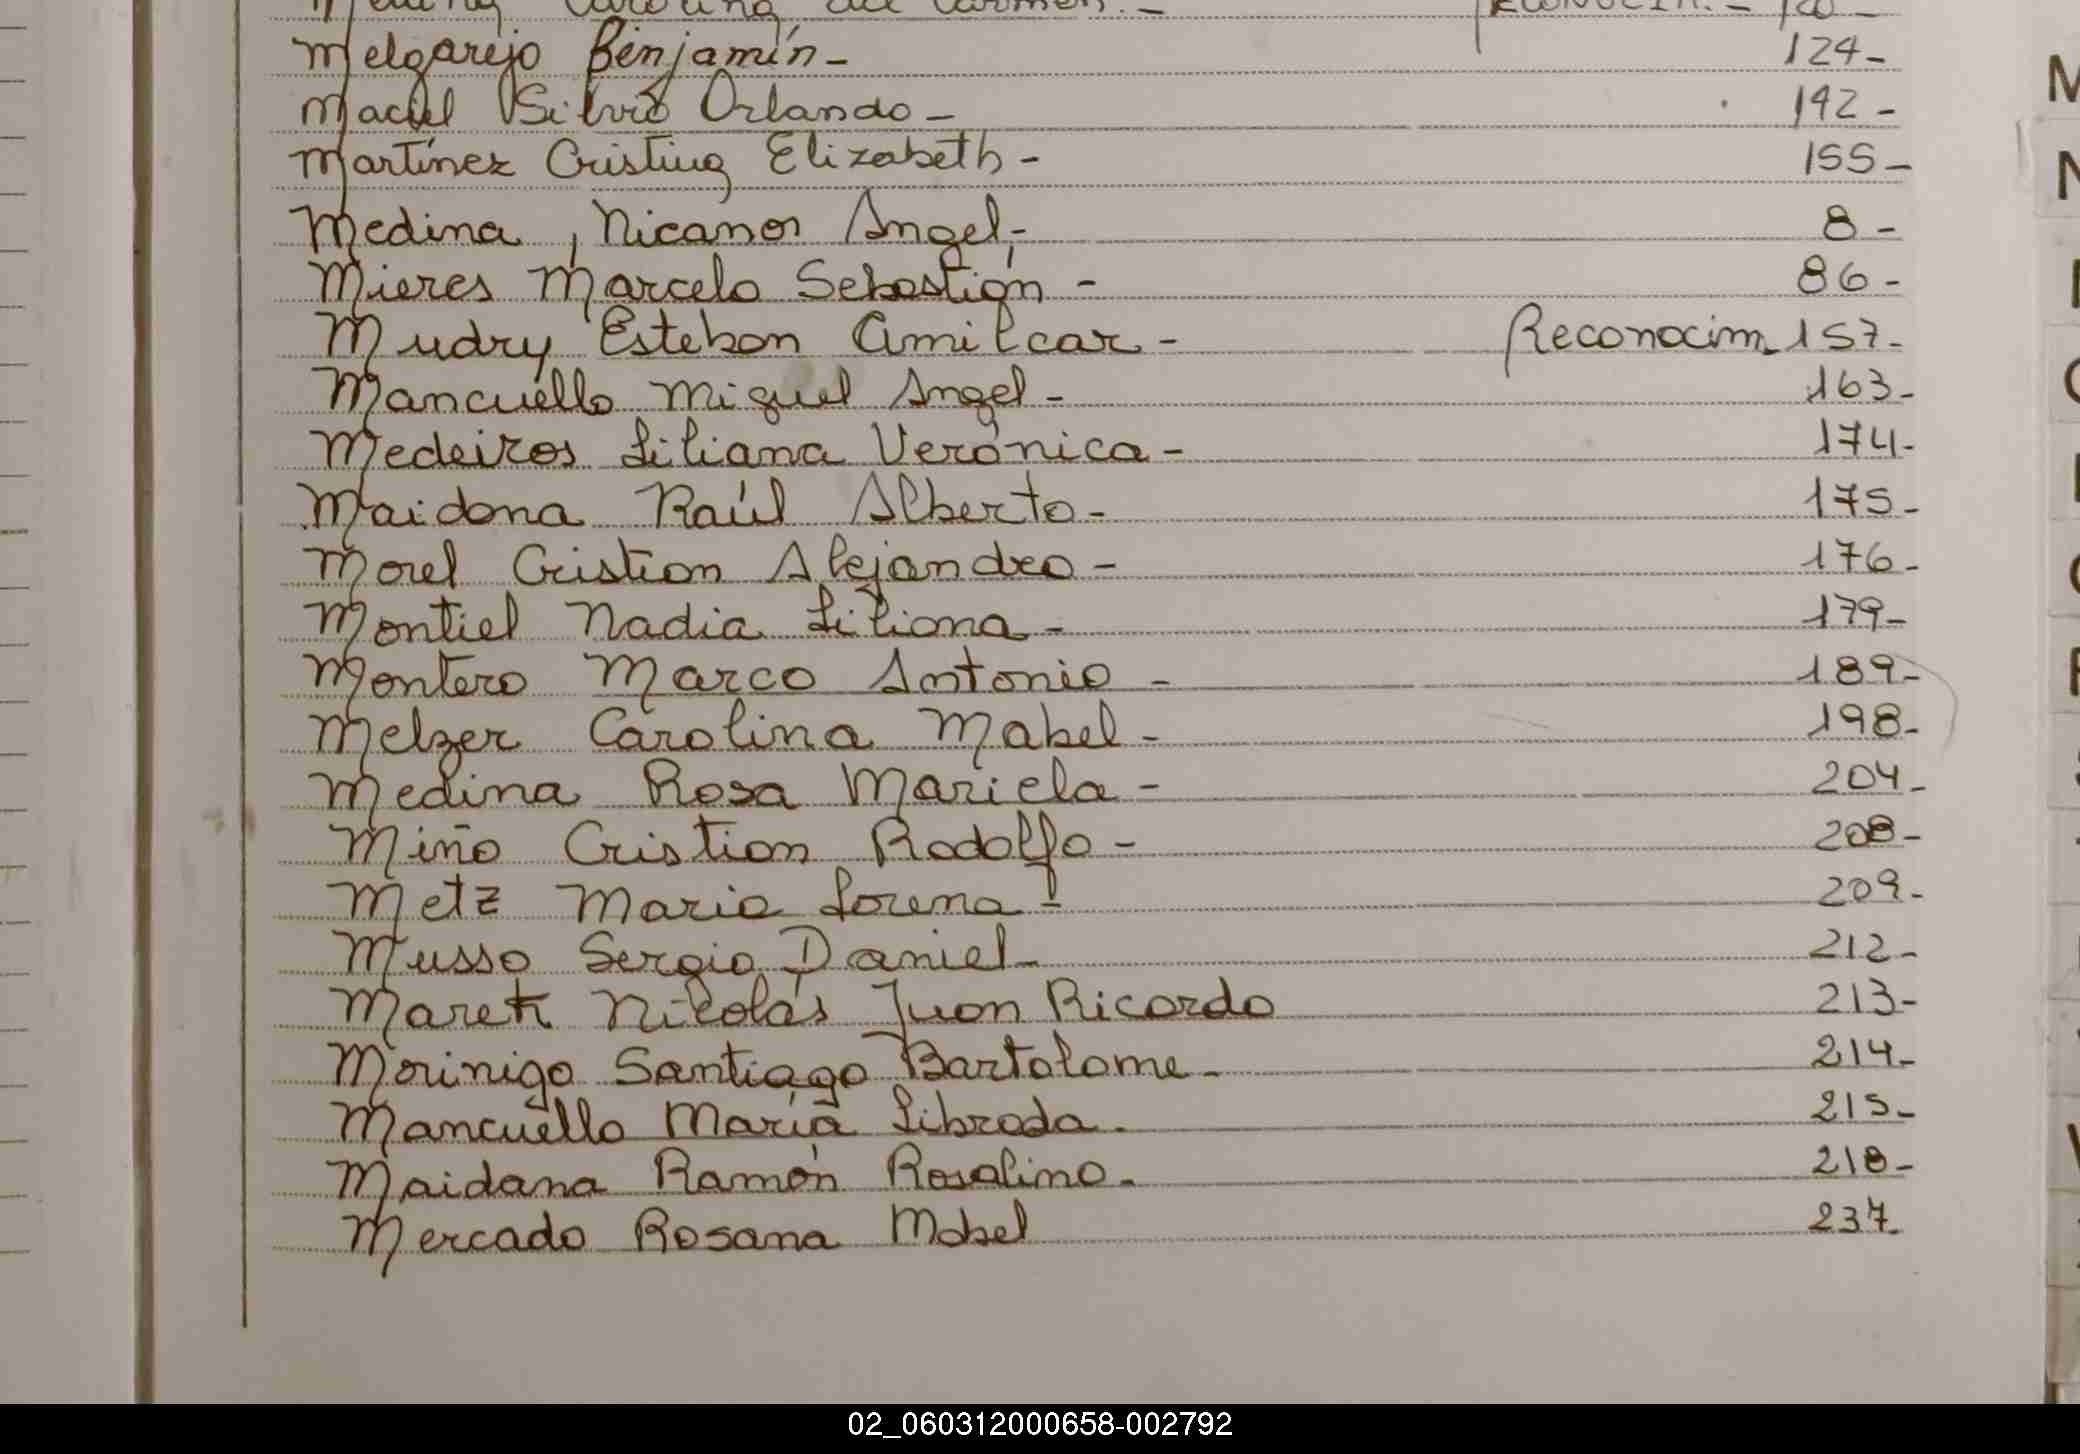 Medina Carolina del Carmen.- Reconocim.- 120-
Melgarejo Benjamín- 124-
Maciel Silvio Orlando- 142-
Martínez Cristina Elizabeth- 155-
Medina, Nicanor Angel,- 8-
Mieres Marcelo Sebastión- 86-
Mudry Esteban Amilcar- Reconocim. 157-
Mancuello Miguel Angel- 163-
Medeiros Liliana Verónica- 174-
Maidana Raúl Alberto- 175-
Morel Cristian Alejandro- 176-
Montiel Nadia Liliana- 179-
Montero Marco Antonio- 189-
Melzer Carolina Mabel- 198-
Medina Rosa Mariela- 204-
Miño Cristian Rodolfo- 208-
Metz Maria Lorena- 209-
Musso Sergio Daniel- 212-
Marek Nicolás Juan Ricardo 213-
Morinigo Santiago Bartolome- 214-
Mancuello María Librada. 215-
Maidana Ramón Rosalino. 218-
Mercado Rosana Mabel 237-
M
N
02_060312000658-002792